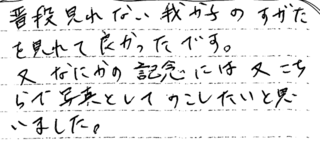 普段見れない我が子のすがた
を見れて良かったです。
又なにかの記念には又こち
らで写真としてのこしたいと思
いました。